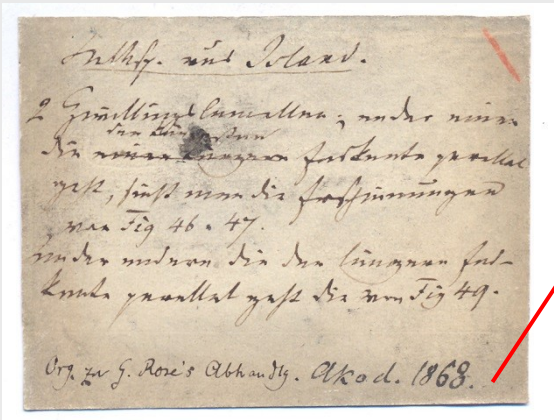 Kalksp. aus Island.
2 Zwillingslamellen; an der einen
die der Endkante parallel
geht, sieht man die Erscheinungen
von Fig 46 u. 47.
an der andern die der längeren End-
kante parallel geht die von Fig 49.
Org. zu G. Rose's Abhandlg. Akad. 1868.